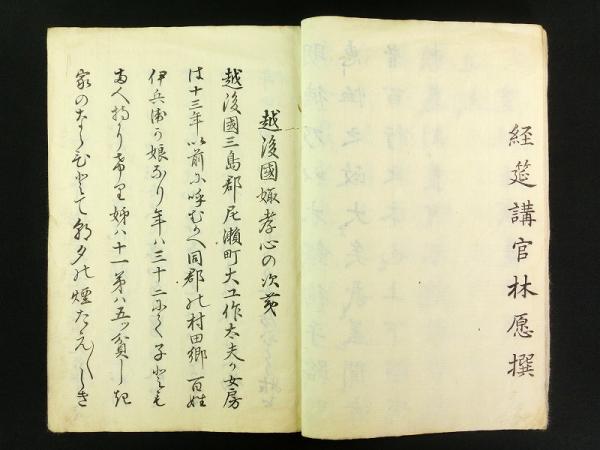 経筵講官林愿撰
越後國娵孝心の次㐧
越後國三島郡尼瀬町大工作太夫か女房
は十三年以前に呼むかへ同郡の村田郷百姓
伊兵衛か娘なり年八三十二にて子とも
両人持り希り姉八十一弟八五ツ貧しき
家のならひとて朝夕の煙たえ〱しき